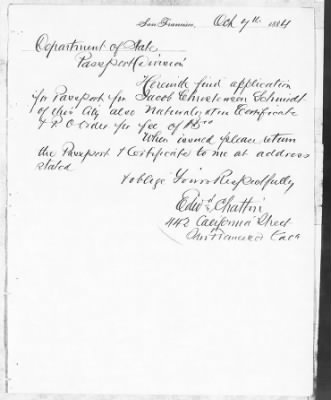 San Francisco, Oct 7th 1884
Department of State
Passport Division
Herewith find application
for Passport for Jacob Christensen Schmidt
of this City also Naturalization Certificate
& P O Order for fee of
When issued please return
the Passport & Certificate to me at address
stated
& oblige Yours Respectfully
Edwd Chattin
442 California Street
San Francisco Cala